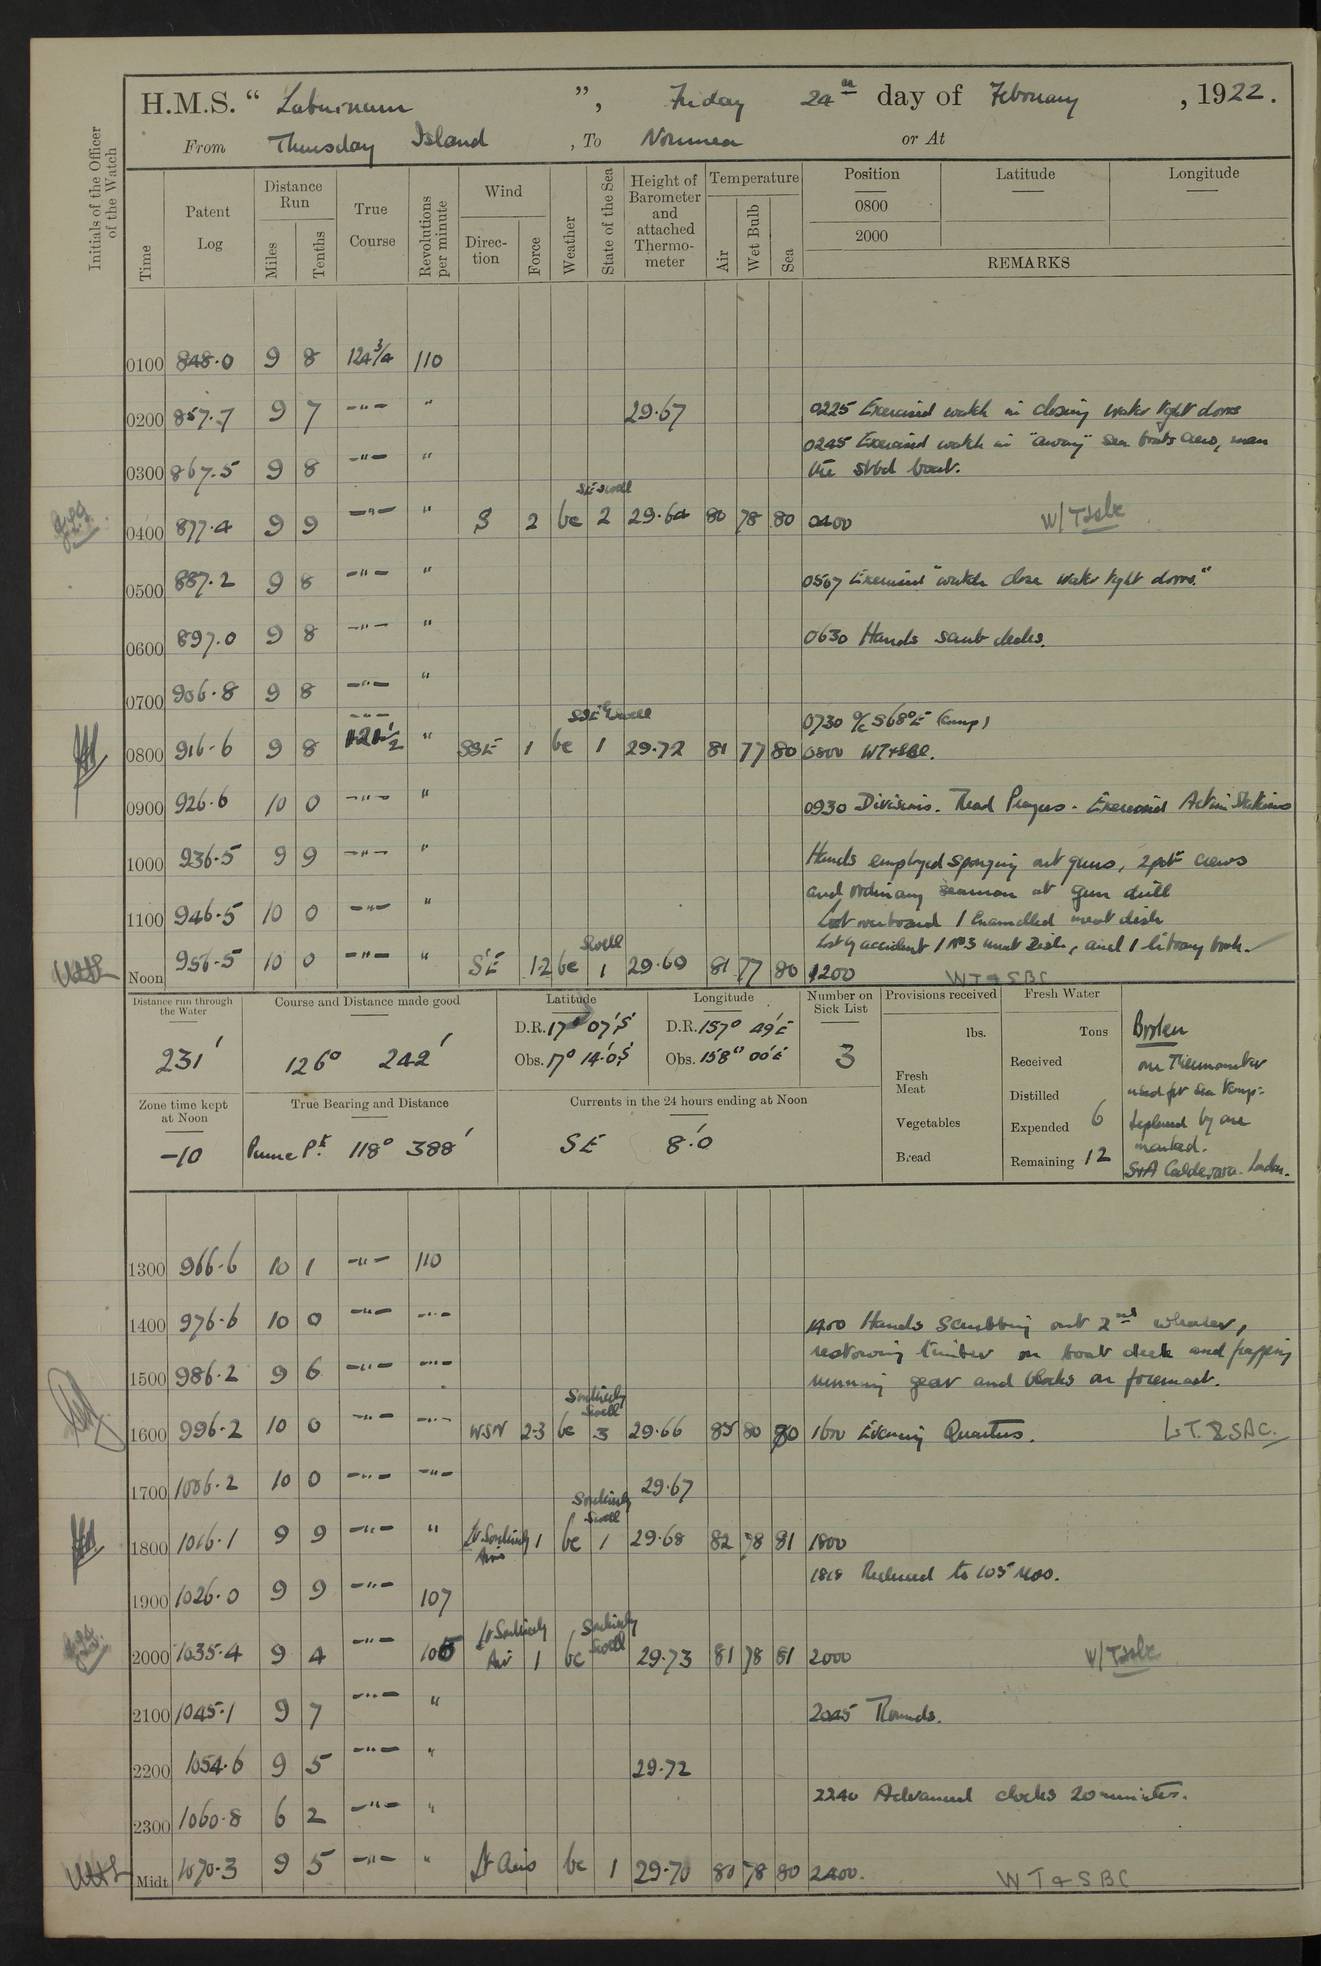 H.M.S. " Laburnum ", Friday 24th day of February, 1922.
From Thursday Island, To Noumea or At
Initials of the Officer of the Watch
Time Patent Log Distance Run Miles Tenths True Course Revolutions per minute Wind Direction Force Weather State of the Sea Height of Barometer and attached Thermometer Temperature Air Wet Bulb Sea
Position Latitude Longitude
0800
2000
REMARKS
0100 848.0 9 8 124 3/4 110
0200 857.7 9 7 –"– " 29.67 0225 Exercised watch in closing water tight doors
0245 Exercised watch in "away" sea boats crew, man
0300 867.5 9 8 –"– " the stbd boat.
SE swell
0400 877.4 9 9 –"– " S 2 bc 2 29.64 80 78 80 0400
0500 887.2 9 8 –"– " 0507 Exercised "watch close water tight doors."
0600 897.0 9 8 –"– " 0630 Hands scrub decks.
0700 906.8 9 8 –"– "
–"– SSE swell 0730 a/c S68°E (comp)
0800 916.6 9 8 121 1/2 " SSE 1 bc 1 29.72 81 77 80 0800 WT&SBC.
0900 926.6 10 0 –"– " 0930 Divisions. Read Prayers. Exercised Action Stations
1000 936.5 9 9 –"– " Hands employed sponging out guns, 2pdr crews
and ordinary seamen at gun drill
1100 946.5 10 0 –"– " Lost overboard 1 Enamelled meat dish
Swell Lost by accident 1 No 3 meat Dish, and 1 library book.
Noon 956.5 10 0 –"– " SE 1-2 bc 1 29.69 81 77 80 1200 WT&SBC
Distance run through the Water Course and Distance made good Latitude Longitude Number on Sick List Provisions received Fresh Water
231' 126° 242' D.R. 17° 07'S D.R. 157° 49'E 3 lbs. Tons
Obs. 17° 14.0'S Obs. 158° 00'E
Fresh Meat
Vegetables
Bread
Received
Distilled
Expended 6
Remaining 12
Broken
one Thermometer
used for Sea temp:
replaced by one
marked.
S&A Calderara. London.
Zone time kept at Noon True Bearing and Distance Currents in the 24 hours ending at Noon
-10 118° 388' SE 8.0'
1300 966.6 10 1 –"– 110
1400 976.6 10 0 –"– –"– 1400 Hands Scrubbing out 2nd whaler,
restowing timber on boat deck and frapping
1500 986.2 9 6 –"– –"– running gear and blocks on foremast.
Southerly Swell
1600 996.2 10 0 –"– –"– WSW 2-3 bc 3 29.66 85 80 80 1600 Evening Quarters.
1700 1006.2 10 0 –"– –"– 29.67
Southerly Swell
1800 1016.1 9 9 –"– " Lt Southerly Airs 1 bc 1 29.68 82 78 81 1800
1818 Reduced to 105 revs.
1900 1026.0 9 9 –"– 107
2000 1035.4 9 4 –"– 105 Lt Southerly Air 1 bc Southerly Swell 29.73 81 78 81 2000
2100 1045.1 9 7 –"– " 2045 Rounds.
2200 1054.6 9 5 –"– " 29.72
2240 Advanced clocks 20 minutes.
2300 1060.8 6 2 –"– "
Midt 1070.3 9 5 –"– " Lt Airs bc 1 29.70 80 78 80 2400. WT&SBC